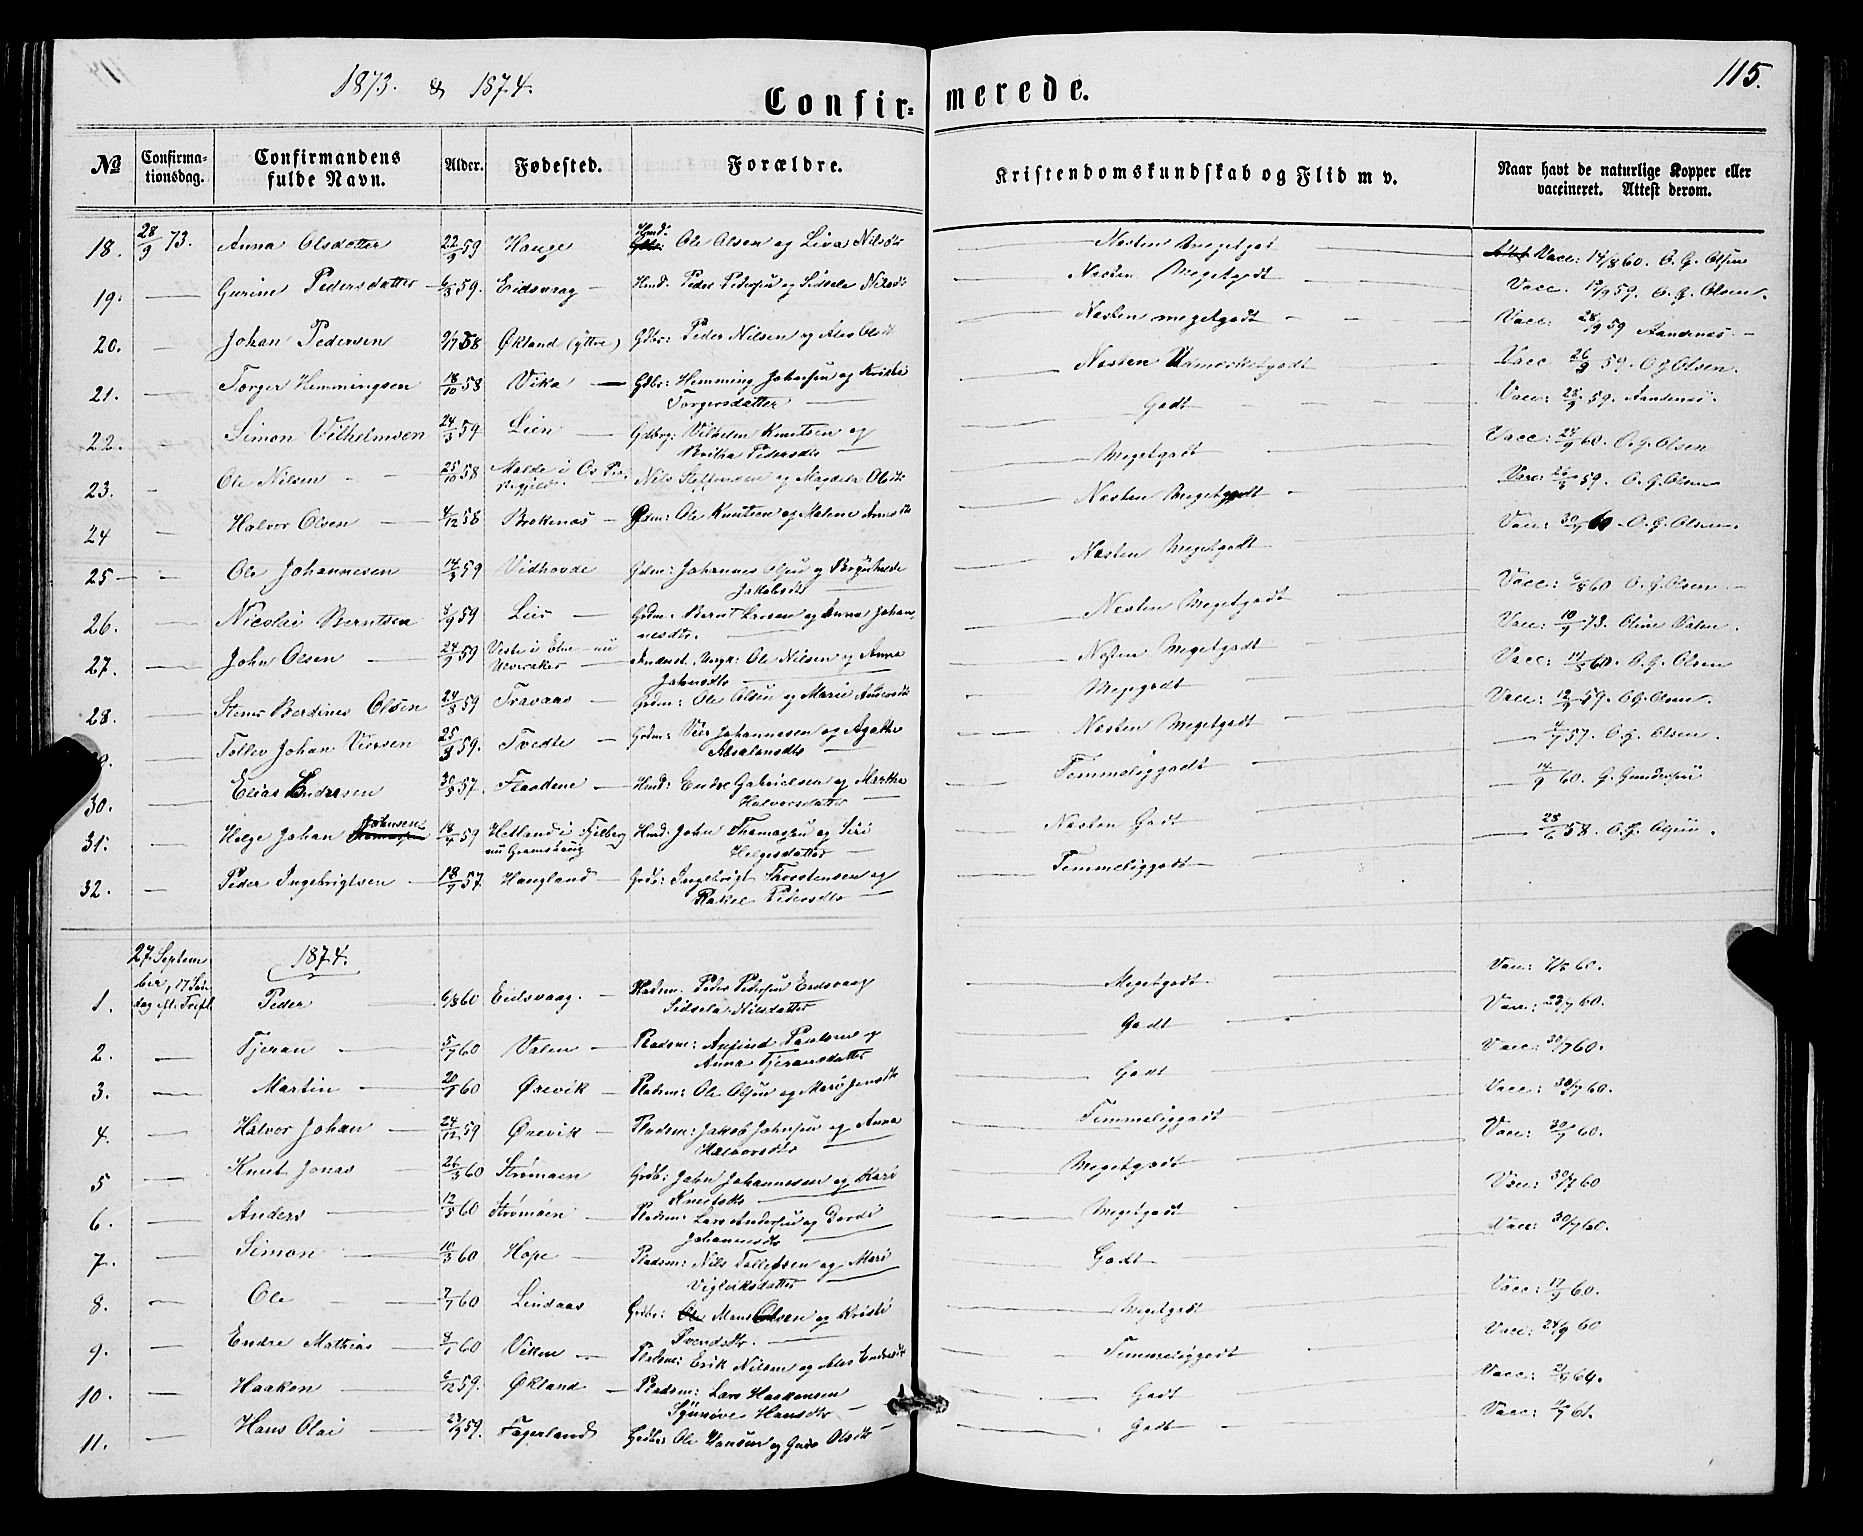 1873. & 1874.
Confir= merede.
115.
No
Confirma-
tionsdag.
Confirmandens
fulde Navn.
Alder.
Fødested.
Forældre.
Kristendomskundskab og Flid m v.
Naar havt de naturlige Kopper eller
vaccineret. Attest derom.
18. 28/9 73. Anna Olsdatter 22/9 59 Hauge Hmd: Ole Olsen og Liva Nilsdtr Næsten Megetgodt Vacc: 14/8 60. O. G. Olsen
19. Gurine Pedersdatter 6/3 59. Eidsvaag Hmd. Peder Pedersen og Sidsela Nilsdr Næsten Megetgodt Vacc. 59. O. G. Olsen.
20. Johan Pedersen 58 Økland (yttre) Gdbr: Peder Nilsen og Ales Olsdr Næsten megetgodt Vacc: 28/9 59 Aandenæs
21. Torger Hemmingsen 18/10 58 Vika Gdbr: Hemming Johnsen og Kristi
Torgersdatter
Næsten Udmærketgodt Vacc 26/9 59. O G Olsen.
22. Simon Vilhelmsen 24/3 59 Lien Gdbrg: Vilhelm Knutsen og
Britha Pedersdtr
Godt Vacc: 28/9 59. Aandenæs.
23. Ole Nilsen 25/10 58 Malde i Os Præ-
stegjeld. Nils Steffensen og Magdela Olsdtr
Megetgodt Vacc: 24/9 60. O. G. Olsen
24 Halvor Olsen 4/12 58 Brekenæs Gdm: Ole Knutsen og Malene Arnesdtr Næsten Megetgodt Vacc: 59. O. G. Olsen
25 Ole Johannesen 14/3 59 Vidhovde Gdm: Johannes Olsen og
Jakobsdtr
Næsten Megetgodt Vacc: 30/7 60. O. G. Olsen.
26. Nicolai Berntsen 59 Lier Grdm. Bernt Larsen og Anna Johan-
nesdtr.
Næsten Megetgodt Vacc: 60 O. G. Olsen
27. John Olsen 24/9 59 i Etne nu
Ulveraker Ole Nilsen og Anna
Johnsdtr
Næsten Megetgodt Vacc: 10/9 73. Oline Valen.
28. Berdines Olsen 24/8 59 Travaas Grdm: Ole Olsen og Marie Andersdtr Megetgodt Vacc: 60. O. G. Olsen
Tollev Johan Viersen 25/3 59. Tvedte Grdm: Vier Johannesen og Agathe
Absalonsdtr
Næsten Megetgodt Vacc: 12/9 59. OG Olsen.
30. Elias Endresen 30/5 57. Flaadene Hmd: Endre Gabrielsen og Martha
Halvorsdatter
Temmeliggodt 57. O. G. Olsen.
31. Helge Johan Johnsen 59 Hetland i Fjelberg
nu Gramshaug Hmd. John Thomassen og Siri
Helgesdatter
Næsten Godt 14/9 60. G. Gundersen
32. Peder Ingebrigtsen 18/7 57 Haugland Grdb: Ingebrigt Thorstensen og
Rakel Pedersdtr
Temmeliggodt 28/6 58. O.G. Olsen.
27. Septem-
ber, 17 Søn-
dag eft. Trefl.
1874.
1. Peder 6/8 60 Eidsvaag. Pladsm. Peder Pedersen Eidsvaag
Sidsela Nilsdatter
Megetgodt Vacc: 60.
2. Tjeran 5/7 60 Valen Pladsm: Anfind Paulsen og
Anna Tjeransdatter
Godt Vacc: 23/7 60.
3. Martin 60 Ørevik Pladsm: Ole Olsen og Mari Jensdtr Godt Vacc: 30/7 60.
4. Halvor Johan 24/12 59 Ørevik Pladsm: Jakob Johnsen og Anna
Halvorsdtr
Temmeliggodt Vacc: 30/7 60.
5 Knut Jonas 26/3 60 Strømøen Grdb: John Johannesen og Kari
Knutsdtr
Megetgodt Vacc: 30/7 60.
6. Anders 12/5 60 Strømøen Pladsm: Lars Andersen og Dordi
Johannesdtr
Megetgodt Vacc: 30/7 60
7. Simon 10/3 60 Hope Pladsm: Nils Tollefsen og Mari
Vigleiksdatter
Godt Vacc: 30/7 60.
8. Ole 60 Lindaas Grdbr: Mons Olsen og Kristi
Svendsdtr.
Megetgodt Vacc: 17/9 60.
9. Endre Mathias 60 Viken Pladsm: Erik Nilsen og Ales Endresdtr Temmeliggodt Vacc: 24/9 60
10. Haaken 6/12 59. Økland Pladsm: Lars Haakensen
Synnøve Hansdtr
Godt Vacc: 64.
11. Hans Olai 59. Fagerland Grdbr: Ole Hansen og Guro Olsdtr Godt Vacc: 61.